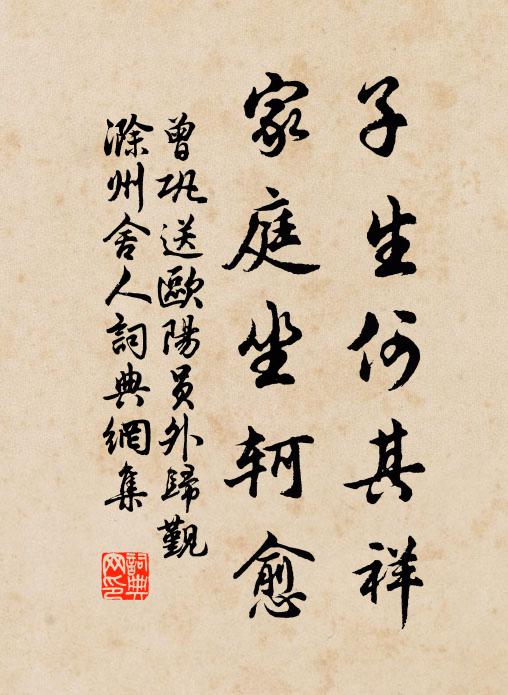 子生何其祥
家庭坐軻愈
曾鞏送歐陽員外歸覲
滁州舍人詞典網集
詞典網印